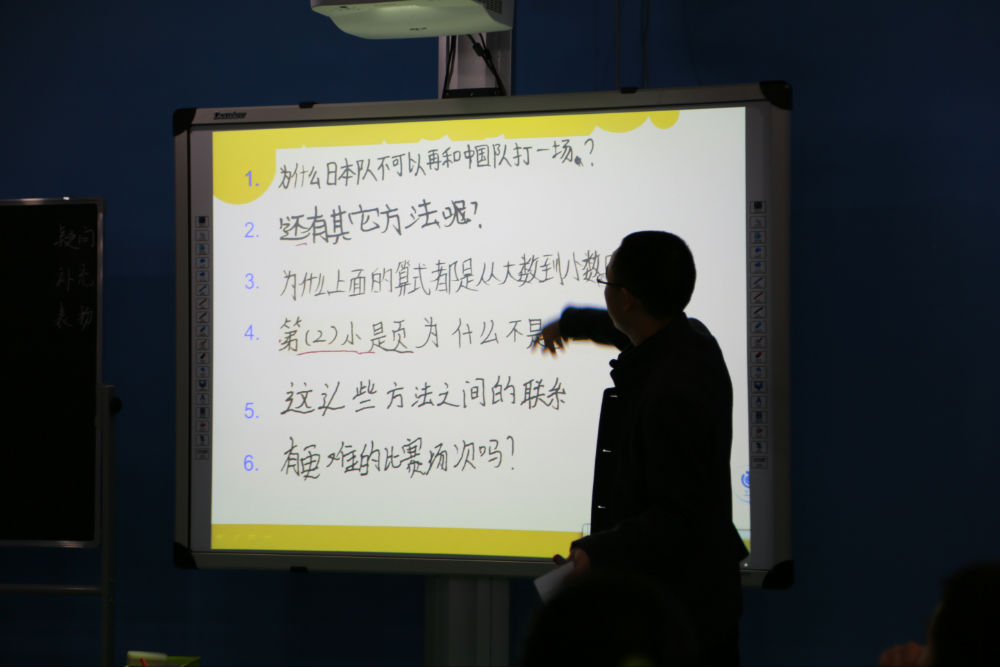 疑问
补充
表扬
1. 为什么日本队不可以再和中国队打一场。?
2. 还有其它方法呢?
3. 为什么上面的算式都是从大数到小数
4. 第(2)小是页为什么不是
5. 这些方法之间的联系
6. 有更难的比赛场次吗?